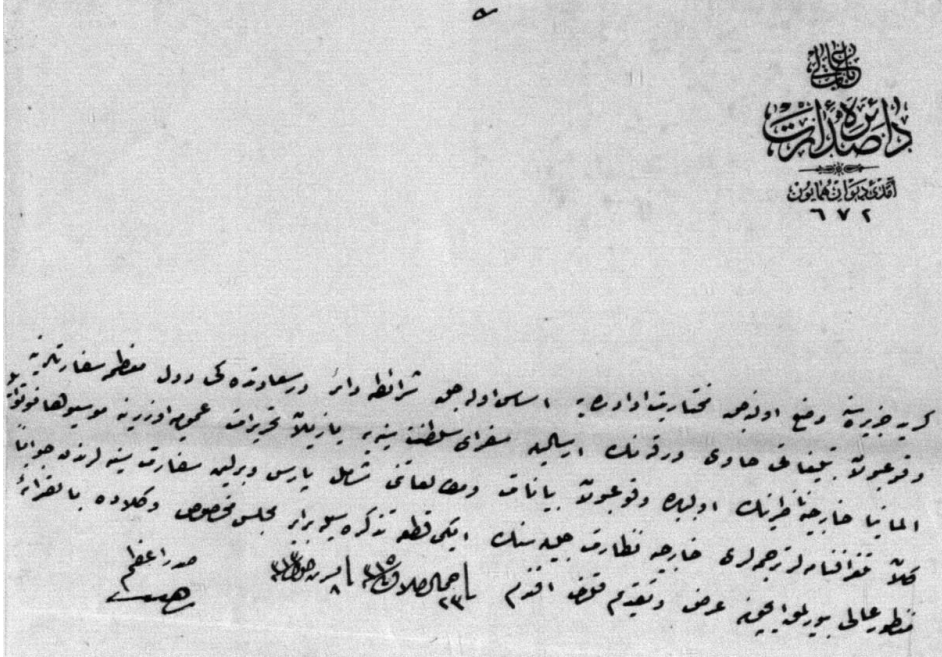 باب عالی
دائرهٔ صدارت
آمدئ دیوان همایون
٦٧٢
کرید جزیره‌سنه وضع اوله‌جق مختاریت اداره‌یه اساس اوله‌جق شرائطه دائر درسعادتده‌کی دول معظمه سفارتلرینه
وقوعبولان تبلیغاتی حاوی ورقه‌نك ارسالیله سفرای سلطنت سنیه‌یه یازیلان تحریرات عمومیه اوزرینه موسیو هانوتو ایله
المانیا خارجیه ناظرینك اولبابده وقوعبولان بیانات ومطالعاتنی شامل پارس وبرلین سفارت سنیه‌لرندن جواباً
کلان تلغرافنامه‌لر ترجمه‌لری خارجیه نظارت جلیله‌سنك ایکی قطعه تذکره‌سیله برابر مجلس مخصوص وکلاده بالقرائه
منظور عالی بیورلمق ایچون عرض وتقدیم قلنمغله افندم
صدر اعظم